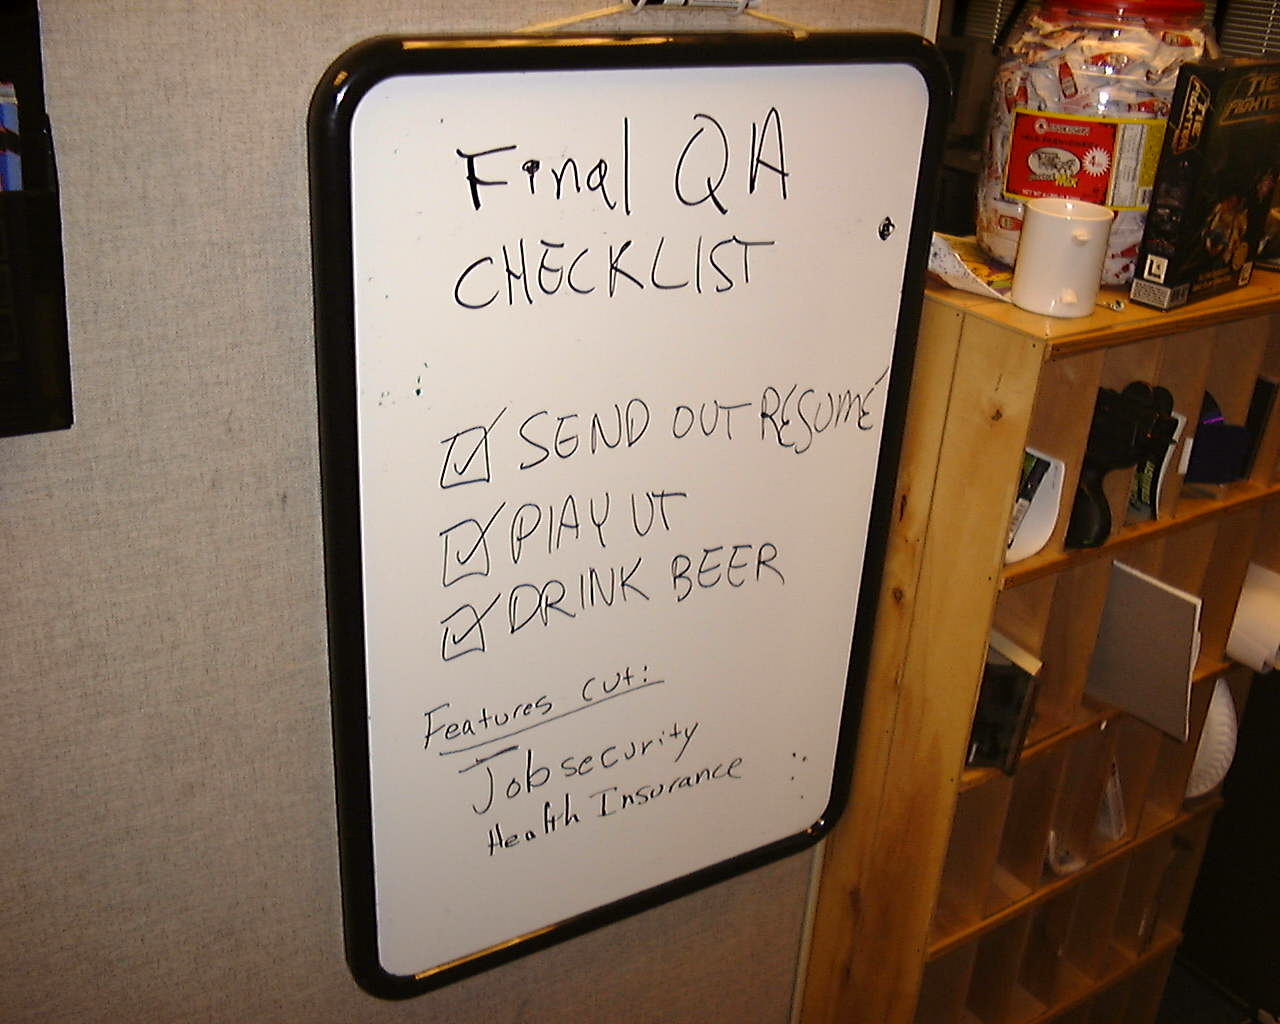 Final QA
CHECKLIST
☑ SEND OUT RESUMÉ
☑ PLAY UT
☑ DRINK BEER
Features cut:
Job security
Health Insurance
TIE
FIGHTER
TIE
FIGHTER
MIX